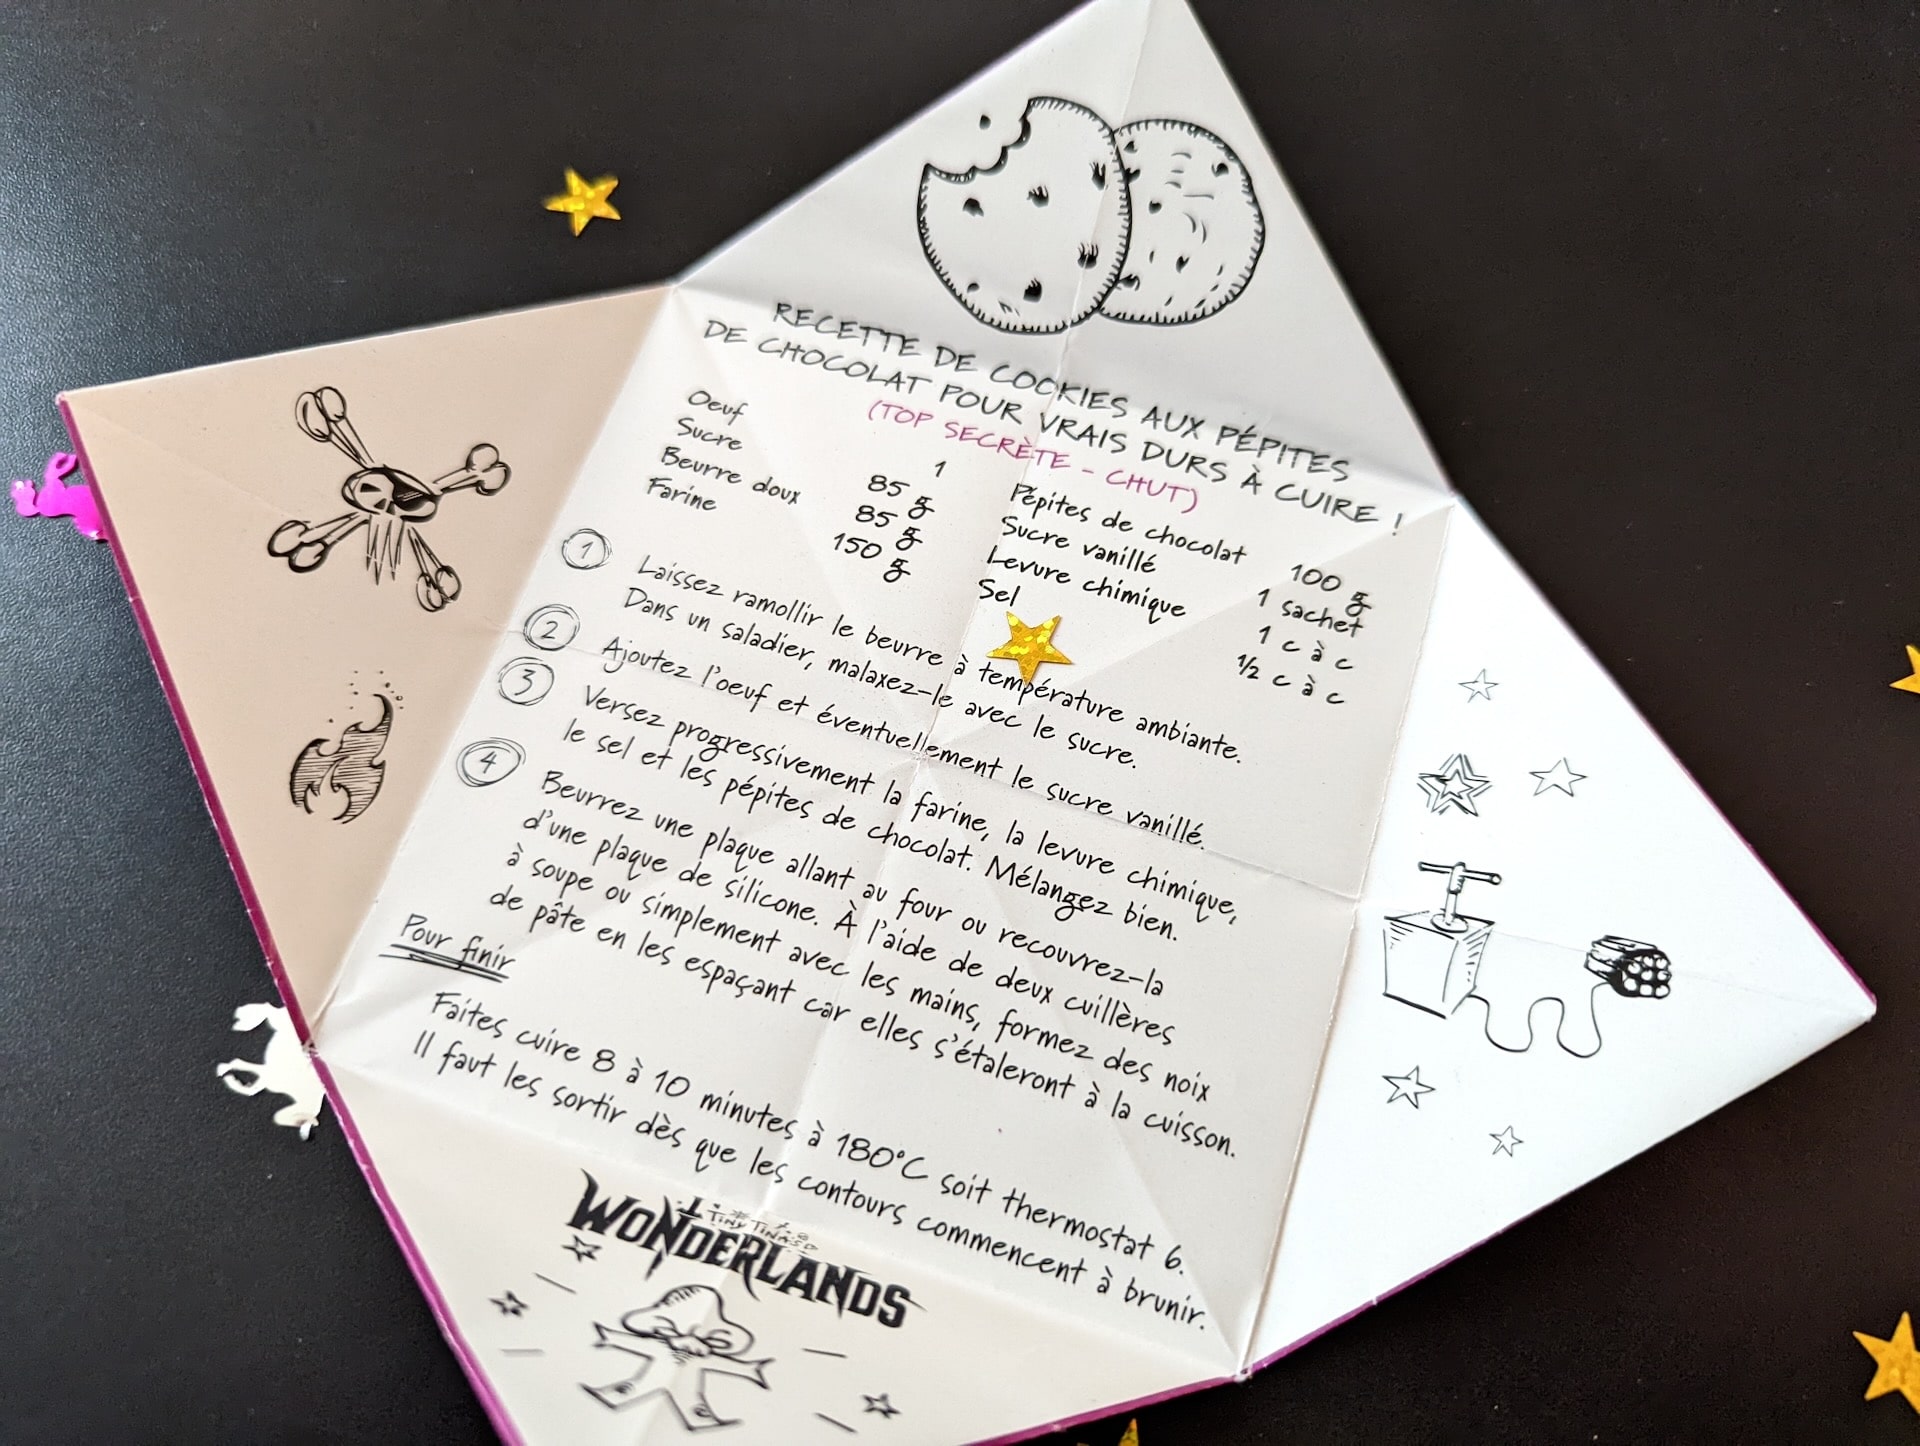 RECETTE DE COOKIES AUX PÉPITES
DE CHOCOLAT POUR VRAIS DURS À CUIRE !
(TOP SECRÈTE - CHUT)
Oeuf 1
Sucre 85 g
Beurre doux 85 g
Farine 150 g
Pépites de chocolat 100 g
Sucre vanillé 1 sachet
Levure chimique 1 c à c
Sel 1/2 c à c
1 Laissez ramollir le beurre à température ambiante.
Dans un saladier, malaxez-le avec le sucre.
2 Ajoutez l'oeuf et éventuellement le sucre vanillé.
3 Versez progressivement la farine, la levure chimique,
le sel et les pépites de chocolat. Mélangez bien.
4 Beurrez une plaque allant au four ou recouvrez-la
d'une plaque de silicone. À l'aide de deux cuillères
à soupe ou simplement avec les mains, formez des noix
de pâte en les espaçant car elles s'étaleront à la cuisson.
Pour finir
Faites cuire 8 à 10 minutes à 180°C soit thermostat 6.
Il faut les sortir dès que les contours commencent à brunir.
TINY TINA'S
WONDERLANDS